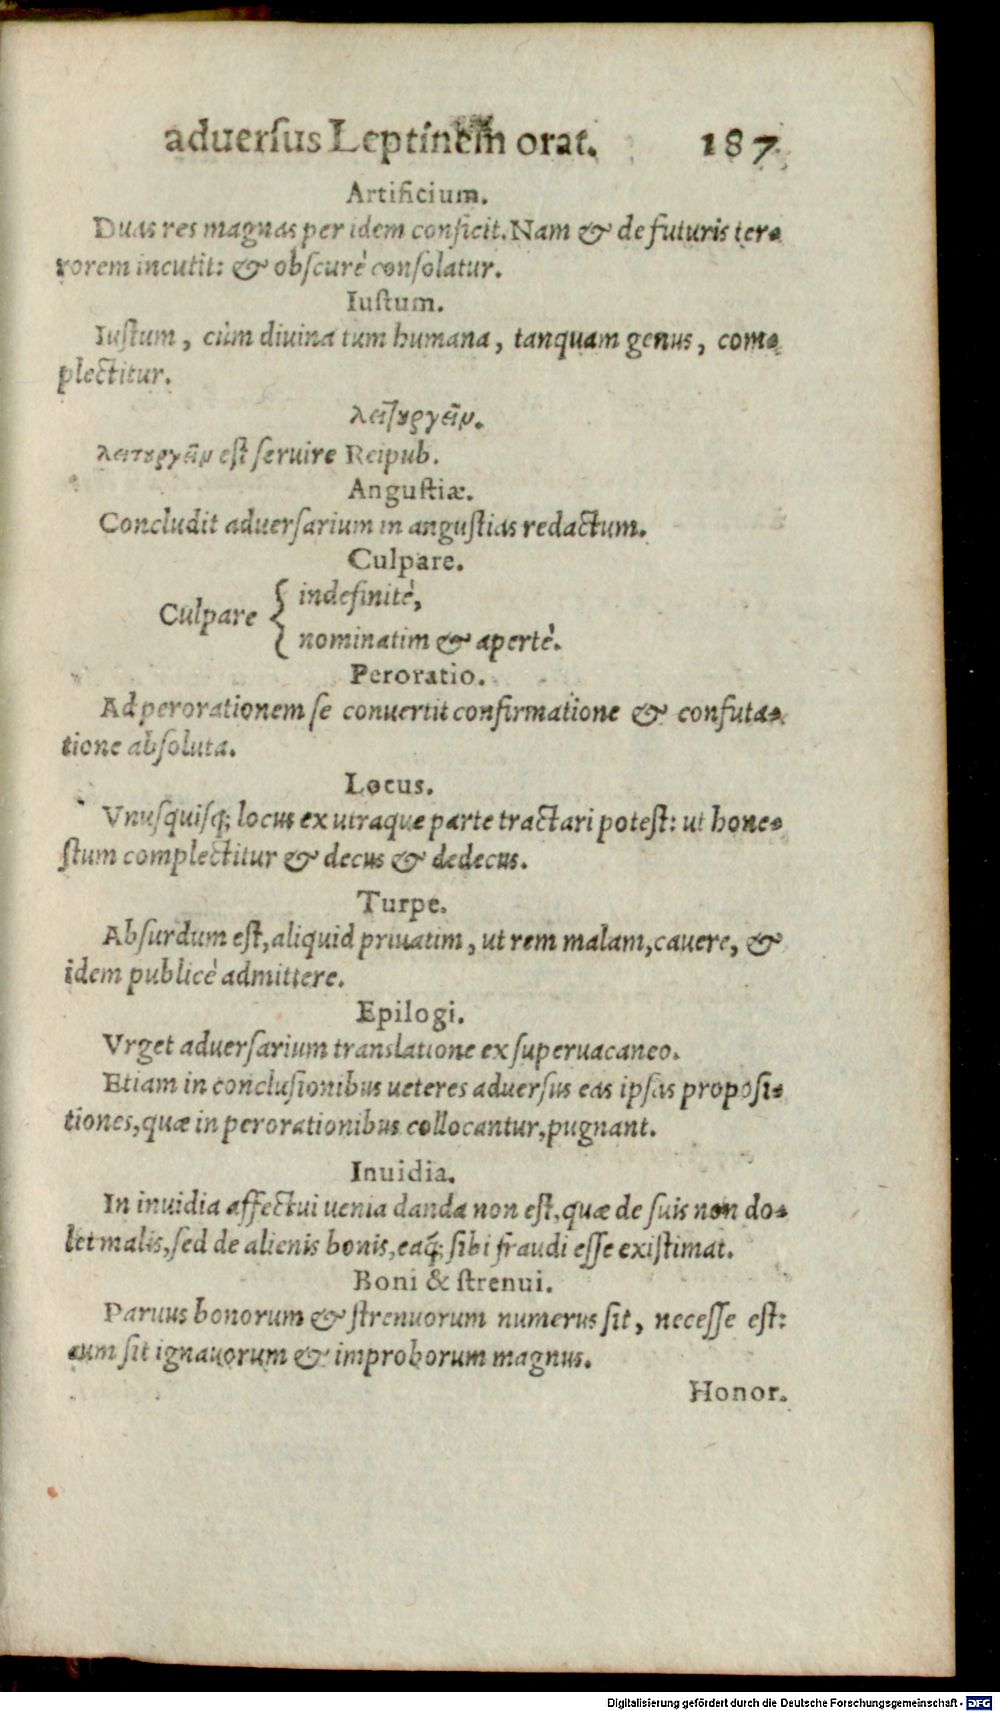 aduersus Leptinem orat. 187
Artificium.
Duas res magnas per idem conficit. Nam & de futuris ter-
rorem incutit: & obscurè consolatur.
Iustum.
Iustum, cùm diuina tum humana, tanquam genus, com-
plectitur.
λειτουργεῖν.
λειτουργεῖν est seruire Reipub.
Angustiæ.
Concludit aduersarium in angustias redactum.
Culpare.
Culpare { indefinitè,
nominatim & apertè.
Peroratio.
Ad perorationem se conuertit confirmatione & confuta-
tione absoluta.
Locus.
Vnusquisq; locus ex utraque parte tractari potest: ut hone-
stum complectitur & decus & dedecus.
Turpe.
Absurdum est, aliquid priuatim, ut rem malam, cauere, &
idem publicè admittere.
Epilogi.
Vrget aduersarium translatione ex superuacaneo.
Etiam in conclusionibus ueteres aduersus eas ipsas proposi-
tiones, quæ in perorationibus collocantur, pugnant.
Inuidia.
In inuidia affectui uenia danda non est, quæ de suis non do-
let malis, sed de alienis bonis, eaq; sibi fraudi esse existimat.
Boni & strenui.
Paruus bonorum & strenuorum numerus sit, necesse est:
cum sit ignauorum & improborum magnus.
Honor.
Digitalisierung gefördert durch die Deutsche Forschungsgemeinschaft - DFG